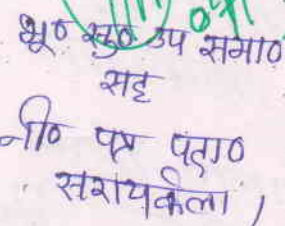 भू० सु० उप समा०
सह
नी० पत्र पदा०
सरायकेला,